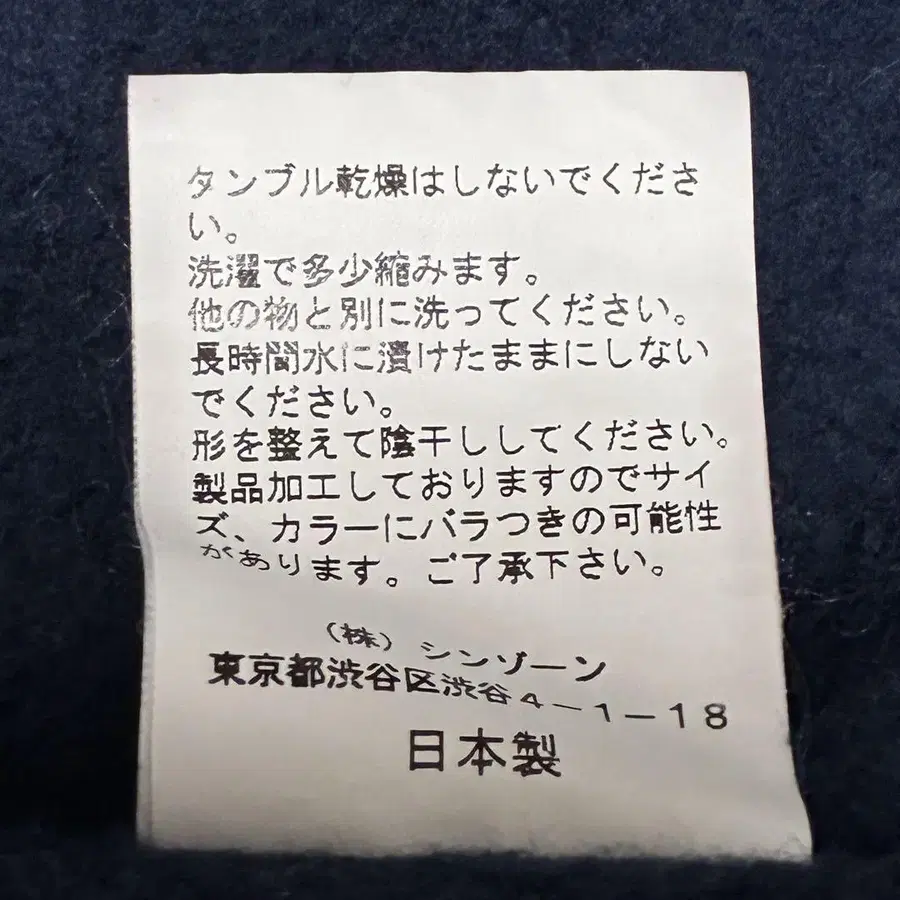 タンブル乾燥はしないでくださ
い。
洗濯で多少縮みます。
他の物と別に洗ってください。
長時間水に漬けたままにしない
でください。
形を整えて陰干ししてください。
製品加工しておりますのでサイ
ズ、カラーにバラつきの可能性
があります。ご了承下さい。
(株) シンゾーン
東京都渋谷区渋谷4-1-18
日本製